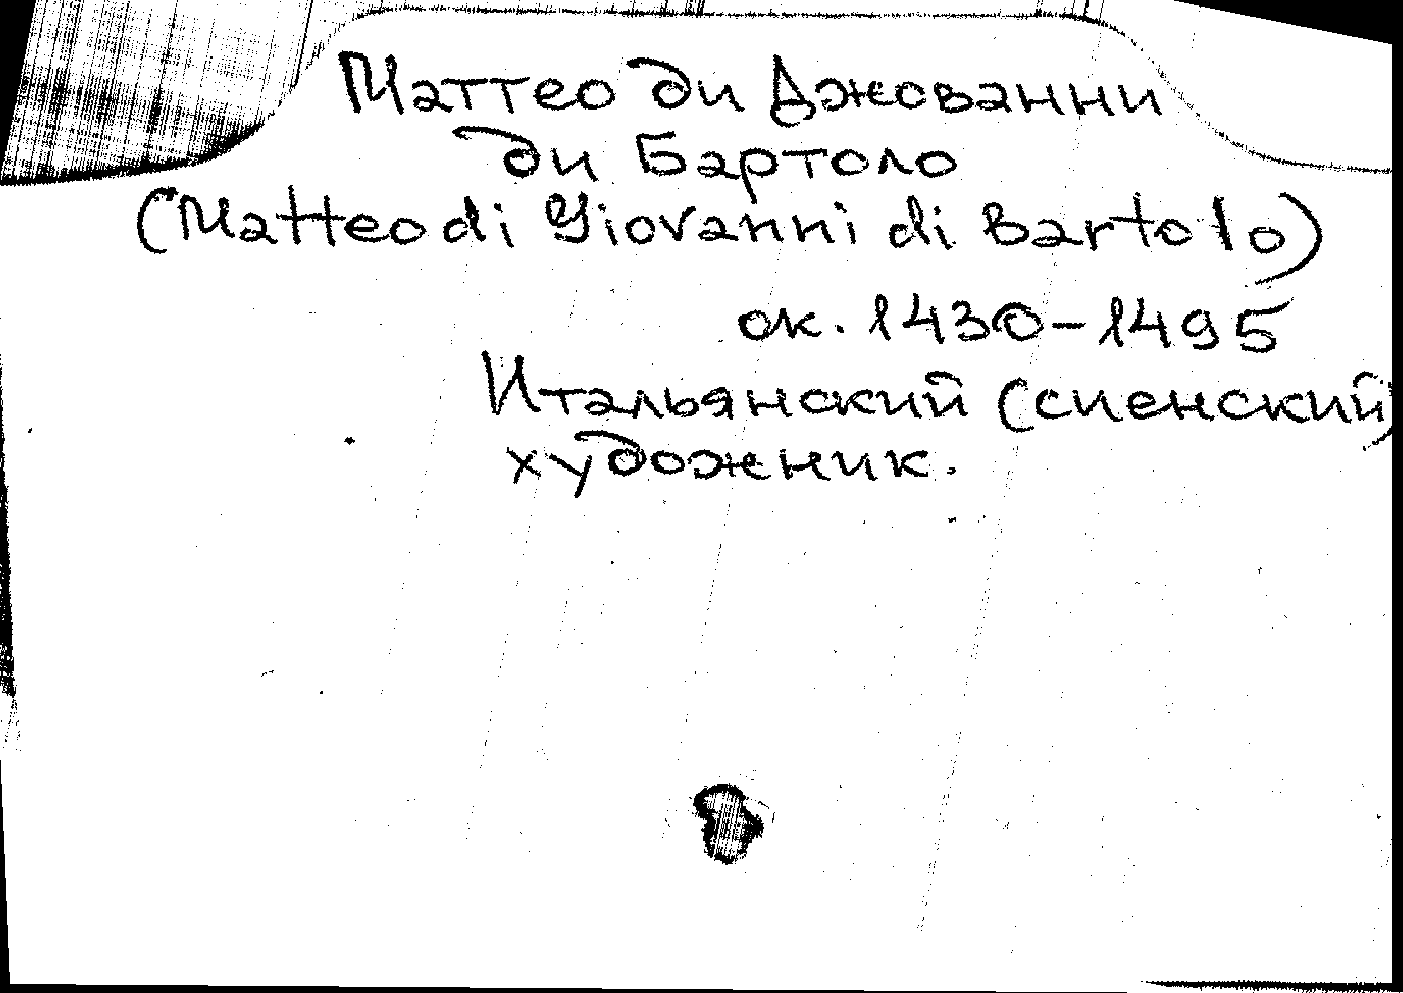 Маттео ди Джованни
ди Бартоло
(Matteo di Giovanni di Bartolo)
ок. 1430-1495
Итальянский (сиенский)
художник.